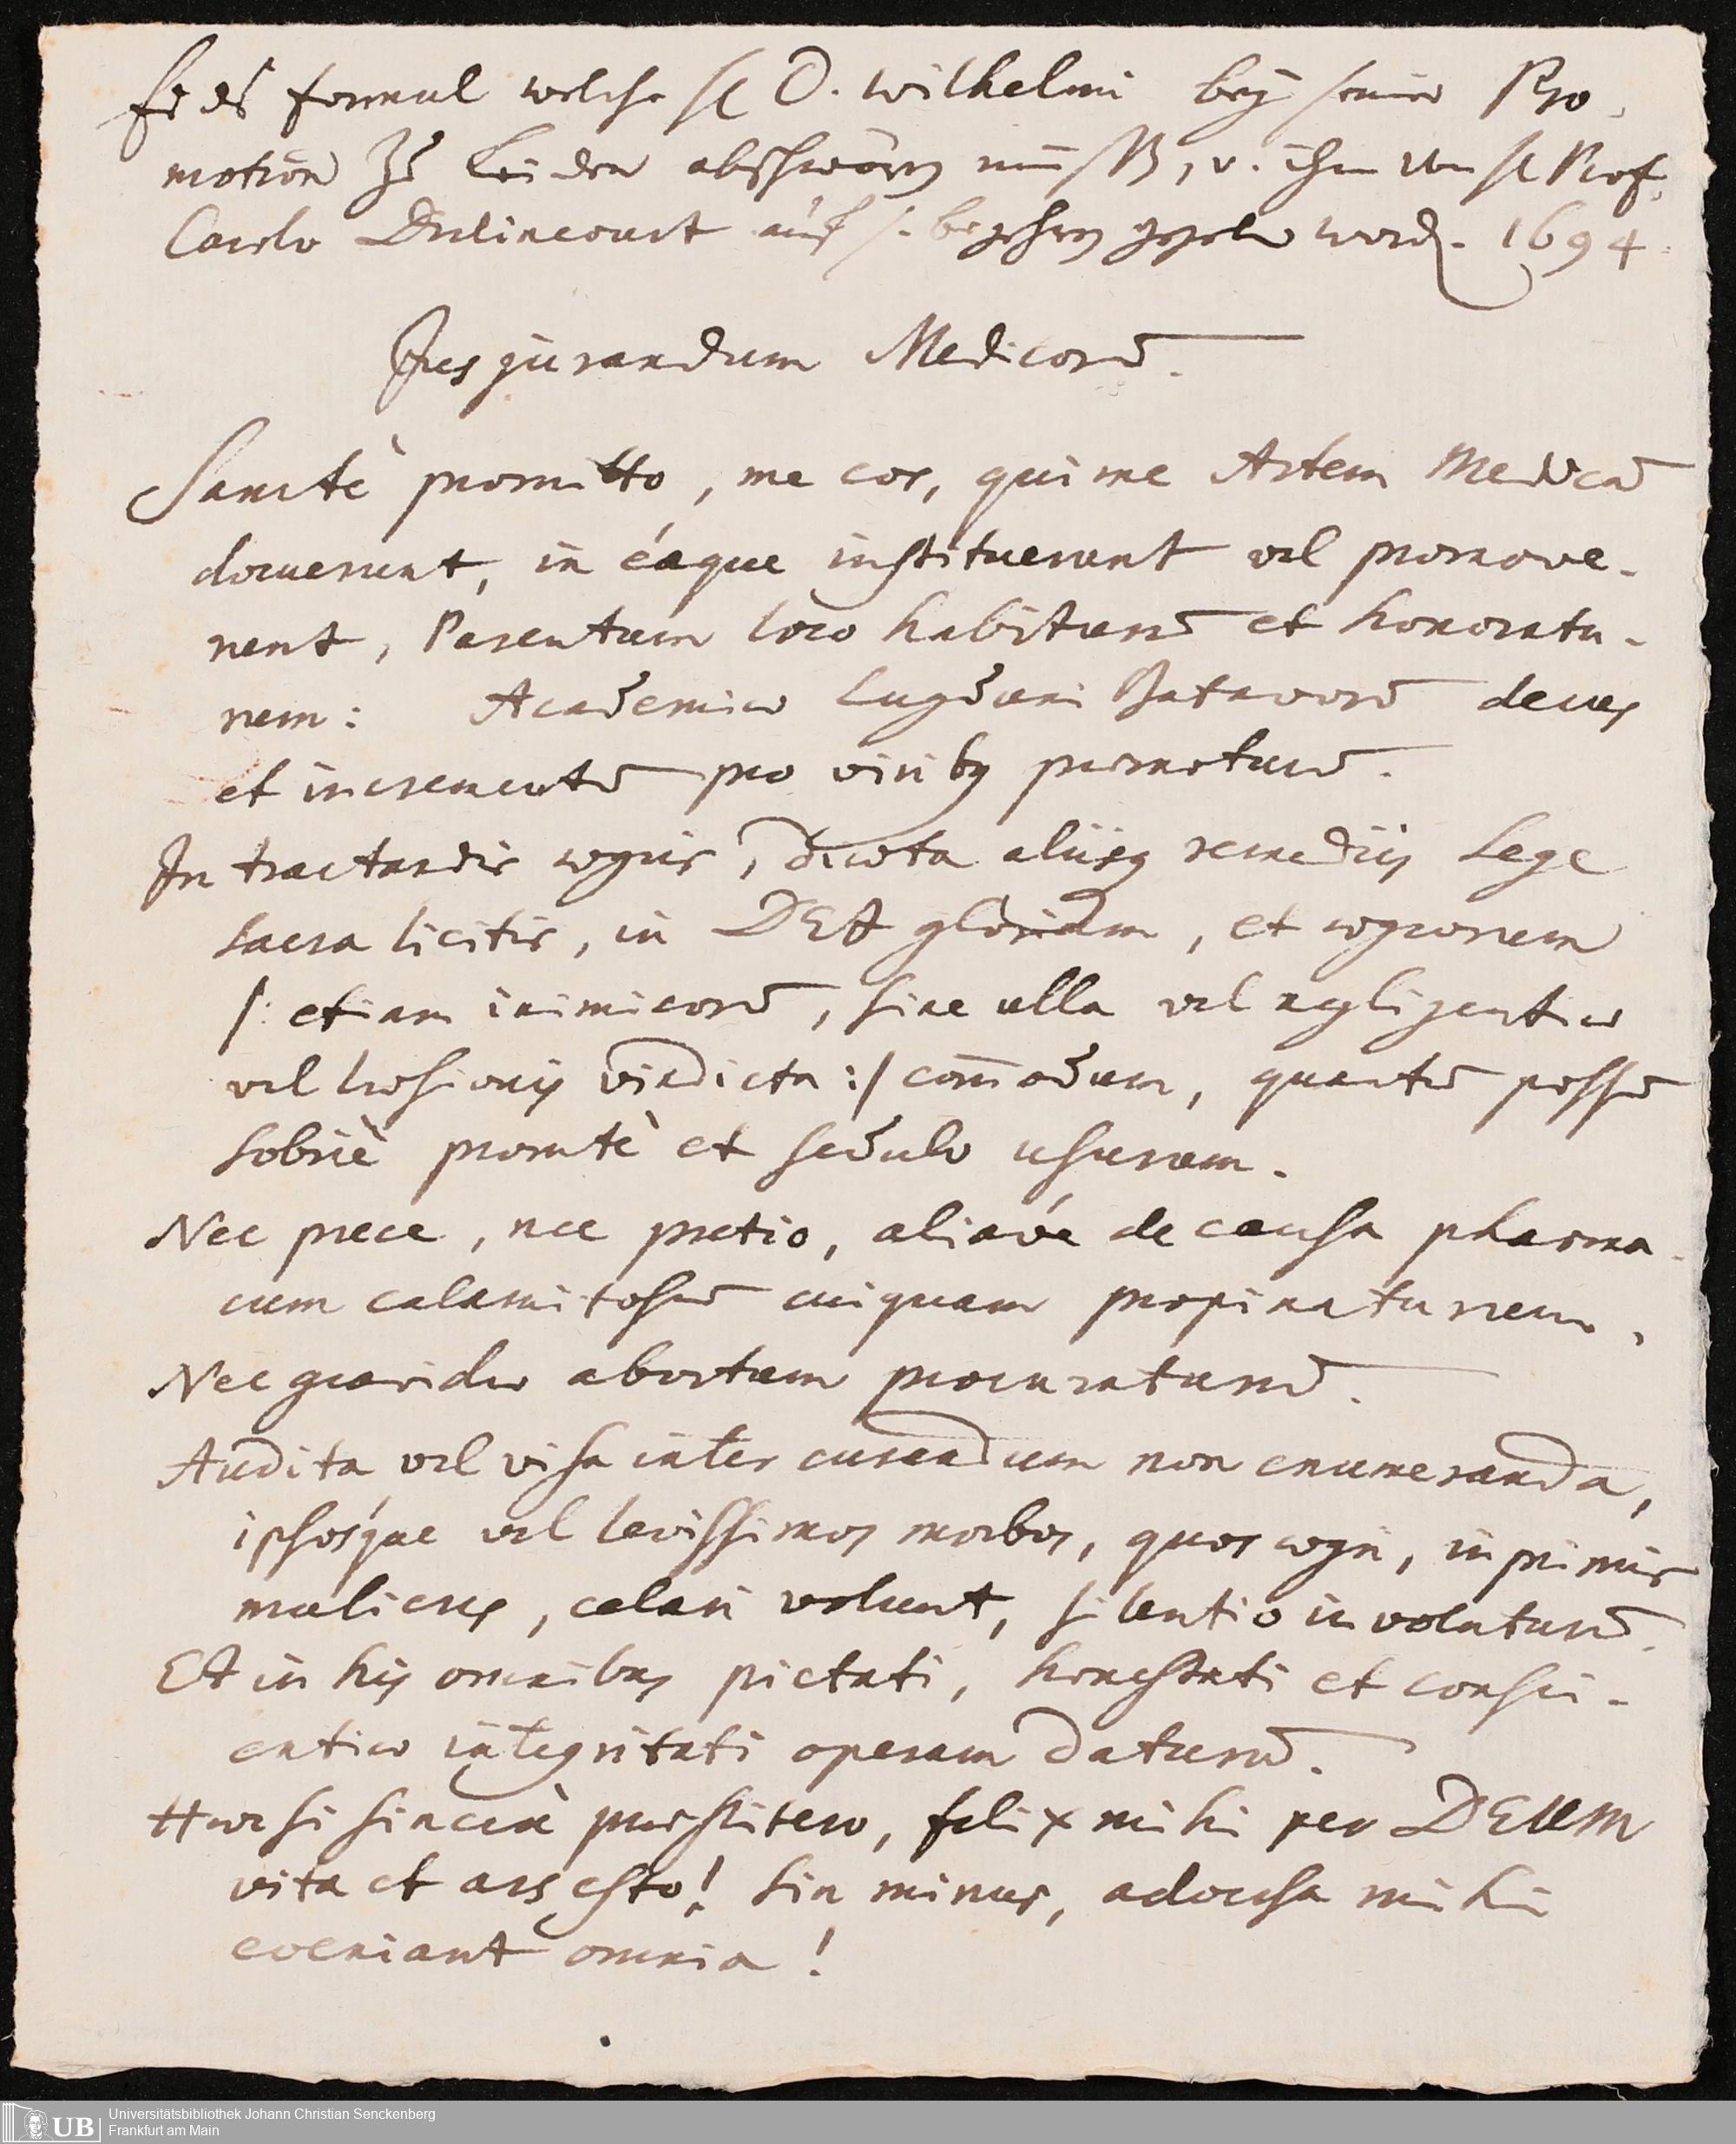 Eides formul welche H. D. Wilhelmi bey seiner Pro-
motion zu Leiden abschwören müssen, v. ihm von H. Prof.
Carolo Drelincourt auf s. begehren gegeben word. 1694.
Jusjurandum Medicorū.
Sanctè promitto, me eos, qui me Artem Medicā
docuerunt, in eáque instituerunt vel promove-
rent, Parentum loco habiturū et honoratu-
rem: Academiæ Lugduni Batavorū decus
et incrementū pro viribꝫ promoturū.
In tractandis ægris, diæta aliisqꝫ remediis Lege
sacra licitis, in DEI gloriam, et ægrorum
/: etiam inimicorū, sine ulla vel negligentiæ
vel læsionis vindicta :/ com̄odum, quantū possū
sobriè promtè et sedulo usurum.
Nec prece, nec pretio, aliáve de causa pharma-
cum calamitosū cuiquam propinaturum,
Nec gravidæ abortum procuraturū.
Audita vel visa inter curandum non enumeranda,
ipsosque vel levissimos morbos, quos ægri, in primis
mulieres, celari volunt, silentio involuturū.
Et in his omnibus pietati, honestati et consci-
entiæ integritati operam daturū.
Hæc si sincerè præstitero, felix mihi per DEUM
vita et ars esto! Sin minus, adversa mihi
eveniant omnia!
Universitätsbibliothek Johann Christian Senckenberg
Frankfurt am Main
UB